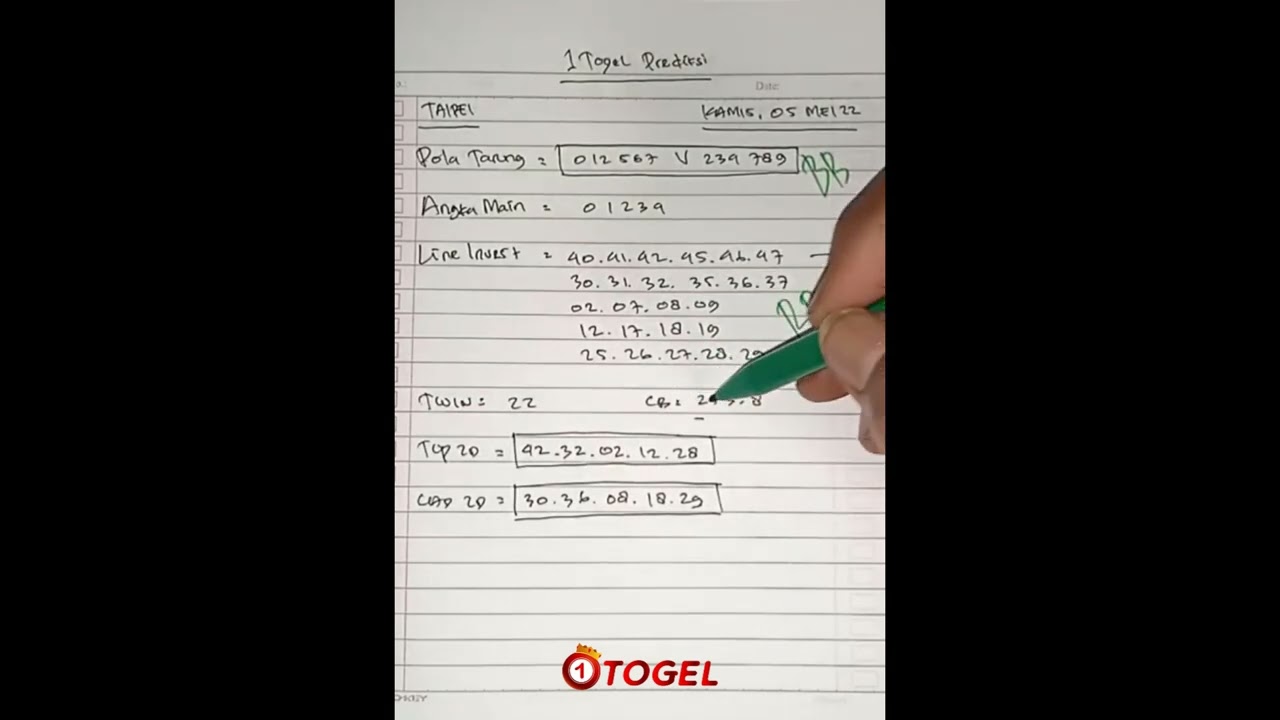 1 Togel Prediksi
Date:
TAIPEI KAMIS, 05 MEI 22
Pola Tarung = 012 567 V 234 789 BB
Angka Main = 01234
Line Invest = 40.41.42.45.46.47
30.31.32.35.36.37
02.07.08.09
12.17.18.19
25.26.27.28.29
TWIN = 22 CB = 2
TOP 2D = 42.32.02.12.28
CAD 2D = 30.36.08.18.29
1TOGEL